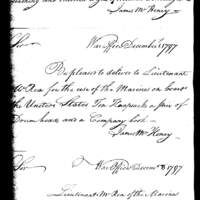 James McHenry
Sir War Office Decembr 1 1797
Be pleased to deliver to Lieutenant
McRea for the use of the Marines on board
the United States Ten Knapsacks a pair of
Drumheads and a Company book
James McHenry
Sir War Office Decemr 8 1797
Lieutenant McRea of the Marines